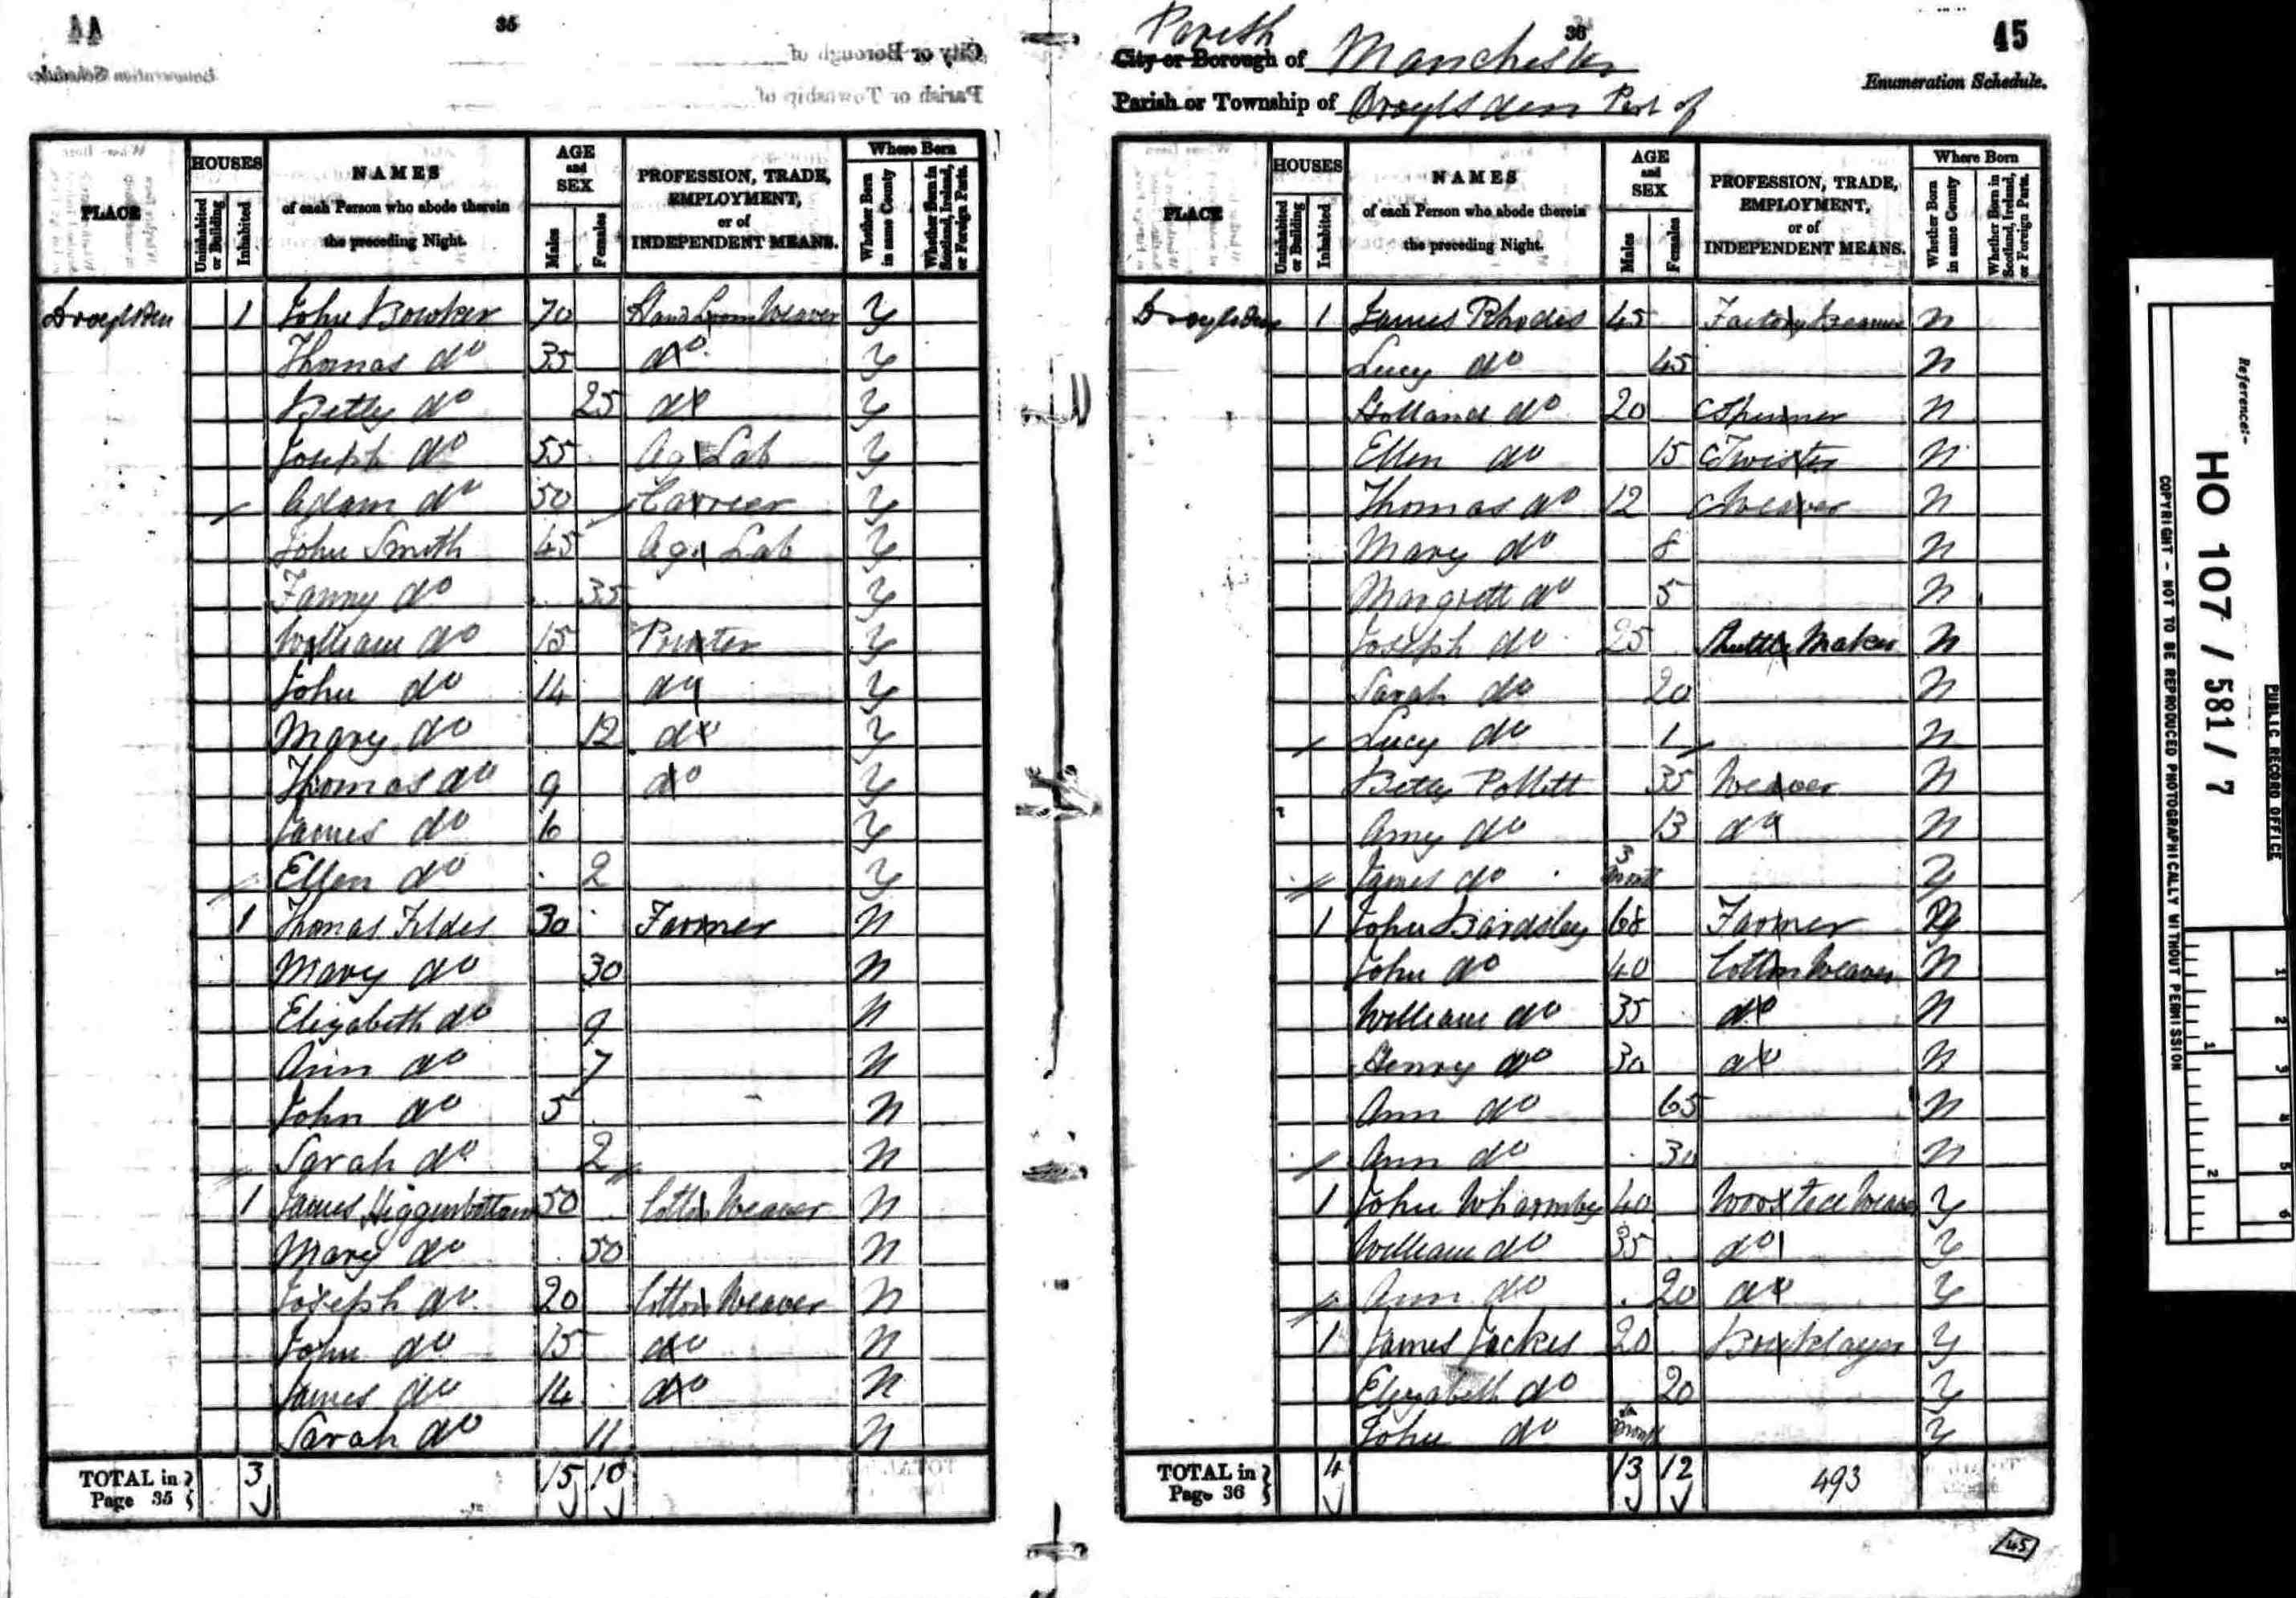 35
PLACE
HOUSES
Uninhabited or Building
Inhabited
NAMES
of each Person who abode therein
the preceding Night.
AGE
and
SEX
Males
Females
PROFESSION, TRADE,
EMPLOYMENT,
or of
INDEPENDENT MEANS.
Where Born
Whether Born in same County
Whether Born in Scotland, Ireland, or Foreign Parts.
Droylsden 1 John Bowker 70 Hand Loom Weaver Y
Thomas do 35 do Y
Betty do 25 do Y
Joseph do 55 Ag Lab Y
Adam do 50 Carrier Y
John Smith 45 Ag Lab Y
Fanny do 35 Y
William do 15 Printer Y
John do 14 do Y
Mary do 12 do Y
Thomas do 9 do Y
James do 6 Y
Ellen do 2 Y
1 Thomas Fildes 30 Farmer N
Mary do 30 N
Elizabeth do 9 N
Ann do 7 N
John do 5 N
Sarah do 2 N
1 James Higginbottam 50 Cotton Weaver N
Mary do 50 N
Joseph do 20 Cotton Weaver N
John do 15 do N
James do 14 do N
Sarah do 11 N
TOTAL in Page 35 3 15 10
36
45
Parish
City or Borough of Manchester
Enumeration Schedule.
Parish or Township of Droylsden Part of
PLACE
HOUSES
Uninhabited or Building
Inhabited
NAMES
of each Person who abode therein
the preceding Night.
AGE
and
SEX
Males
Females
PROFESSION, TRADE,
EMPLOYMENT,
or of
INDEPENDENT MEANS.
Where Born
Whether Born in same County
Whether Born in Scotland, Ireland, or Foreign Parts.
Droylsden 1 James Rhodes 45 Factory Beamer N
Lucy do 45 N
Holland do 20 C Spinner N
Ellen do 15 C Twister N
Thomas do 12 C Weaver N
Mary do 8 N
Margrett do 5 N
Joseph do 25 Shuttle Maker N
Sarah do 20 N
Lucy do 1 N
Betty Pollitt 35 Weaver N
Amy do 13 do N
James do 3 Month Y
1 John Bardsley 68 Farmer
John do 40 Cotton Weaver N
William do 35 do N
Henry do 30 do N
Ann do 65 N
Ann do 30 N
1 John Wharmby 40 Worsted Weaver Y
William do 35 do Y
Ann do 20 do Y
1 James Jackes 20 Bricklayer Y
Elizabeth do 20 Y
John do Month Y
TOTAL in Page 36 4 13 12 493
45
Reference:-
HO 107 / 581 / 7
PUBLIC RECORD OFFICE
COPYRIGHT - NOT TO BE REPRODUCED PHOTOGRAPHICALLY WITHOUT PERMISSION
1 2 3 4 5 6
1 2